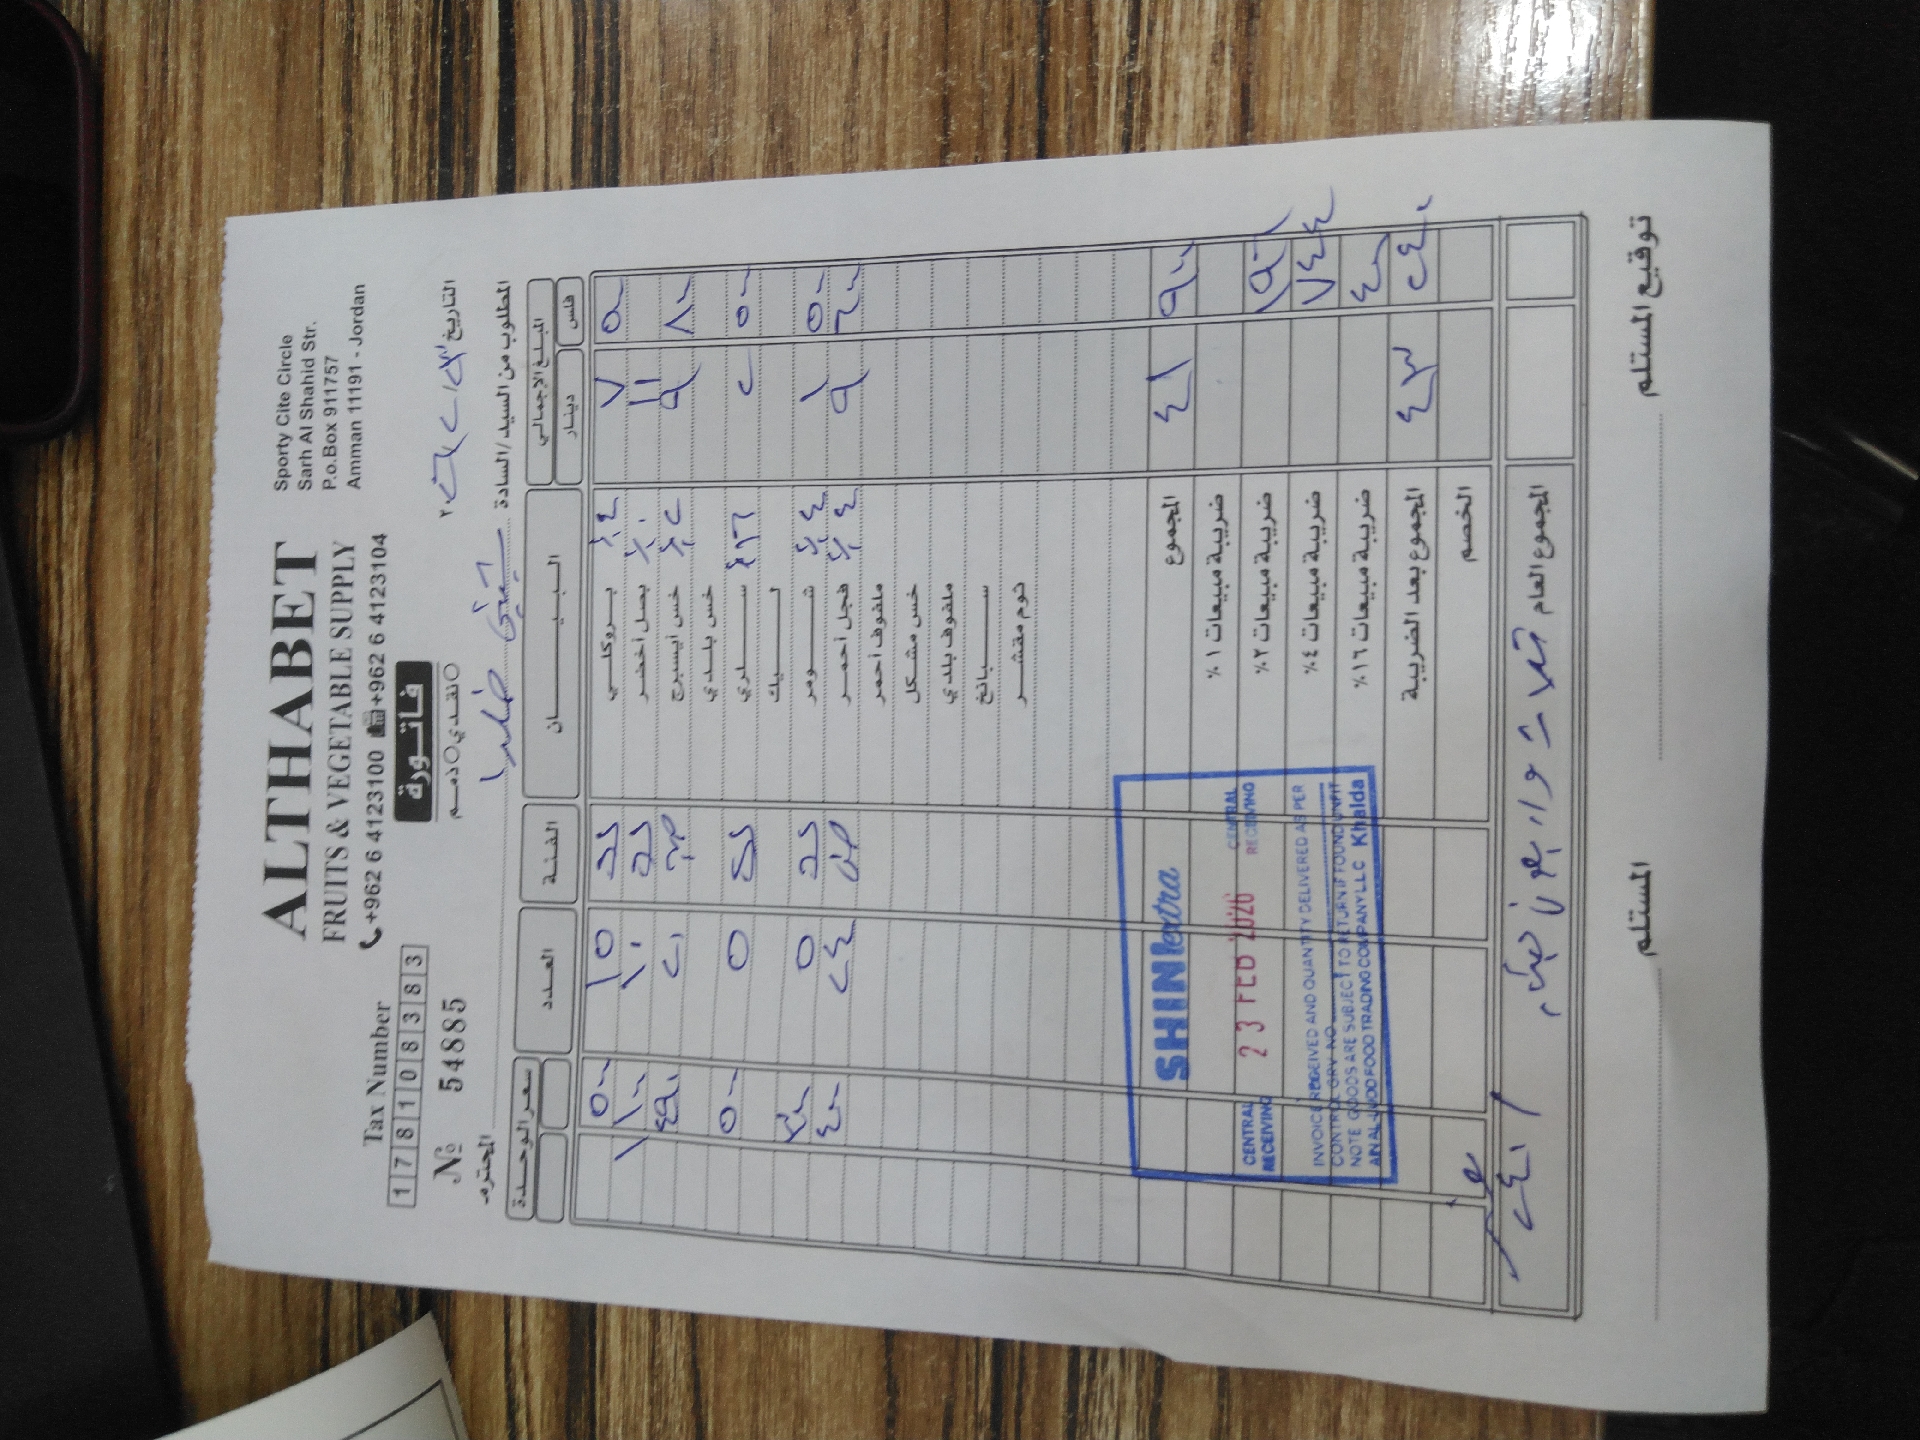 ALTHABET
FRUITS & VEGETABLE SUPPLY
+962 6 4123100 +962 6 4123104
Sporty Cite Circle
Sarh Al Shahid Str.
P.o.Box 911757
Amman 11191 - Jordan
Tax Number
178108383
№ 54885
فاتورة
نقدي ذمم
التاريخ
المطلوب من السيد/السادة
المحترم
المبلغ الإجمالي البيان الفئة العدد سعر الوحدة
فلس دينار
٥٠٠ ٧ بروكلي ٪٤ ١٥ ٥٠٠
١١ بصل أخضر ١٠ ١١٠٠
٨٠٠ ٩ خس ايسبرج ٢٠ ٤٩٠
خس بلدي
٥٠٠ ٢ سلري ٥ ٥٠٠
ليك
٥٠٠ ١ شومر ٥ ٣٠٠
٦٠٠ ٩ فجل أحمر ٢٤ ٤٠٠
ملفوف أحمر
خس مشكل
ملفوف بلدي
سبانخ
ثوم مقشر
٩٠٠ ٤١ المجموع
ضريبة مبيعات ١٪
ضريبة مبيعات ٢٪
٧٤٤ ضريبة مبيعات ٤٪
٤٠٠ ضريبة مبيعات ١٦٪
٢٤٠ ٤٣ المجموع بعد الضريبة
الخصم
المجموع العام
SHINIextra
CENTRAL RECEIVING 23 FEB 2026 CENTRAL RECEIVING
INVOICE RECEIVED AND QUANTITY DELIVERED AS PER
CONTROL GRV NO
NOTE GOODS ARE SUBJECT TO RETURN IF FOUND UNFIT
FOOD TRADING COMPANY LLC Khalda
المستلم
توقيع المستلم